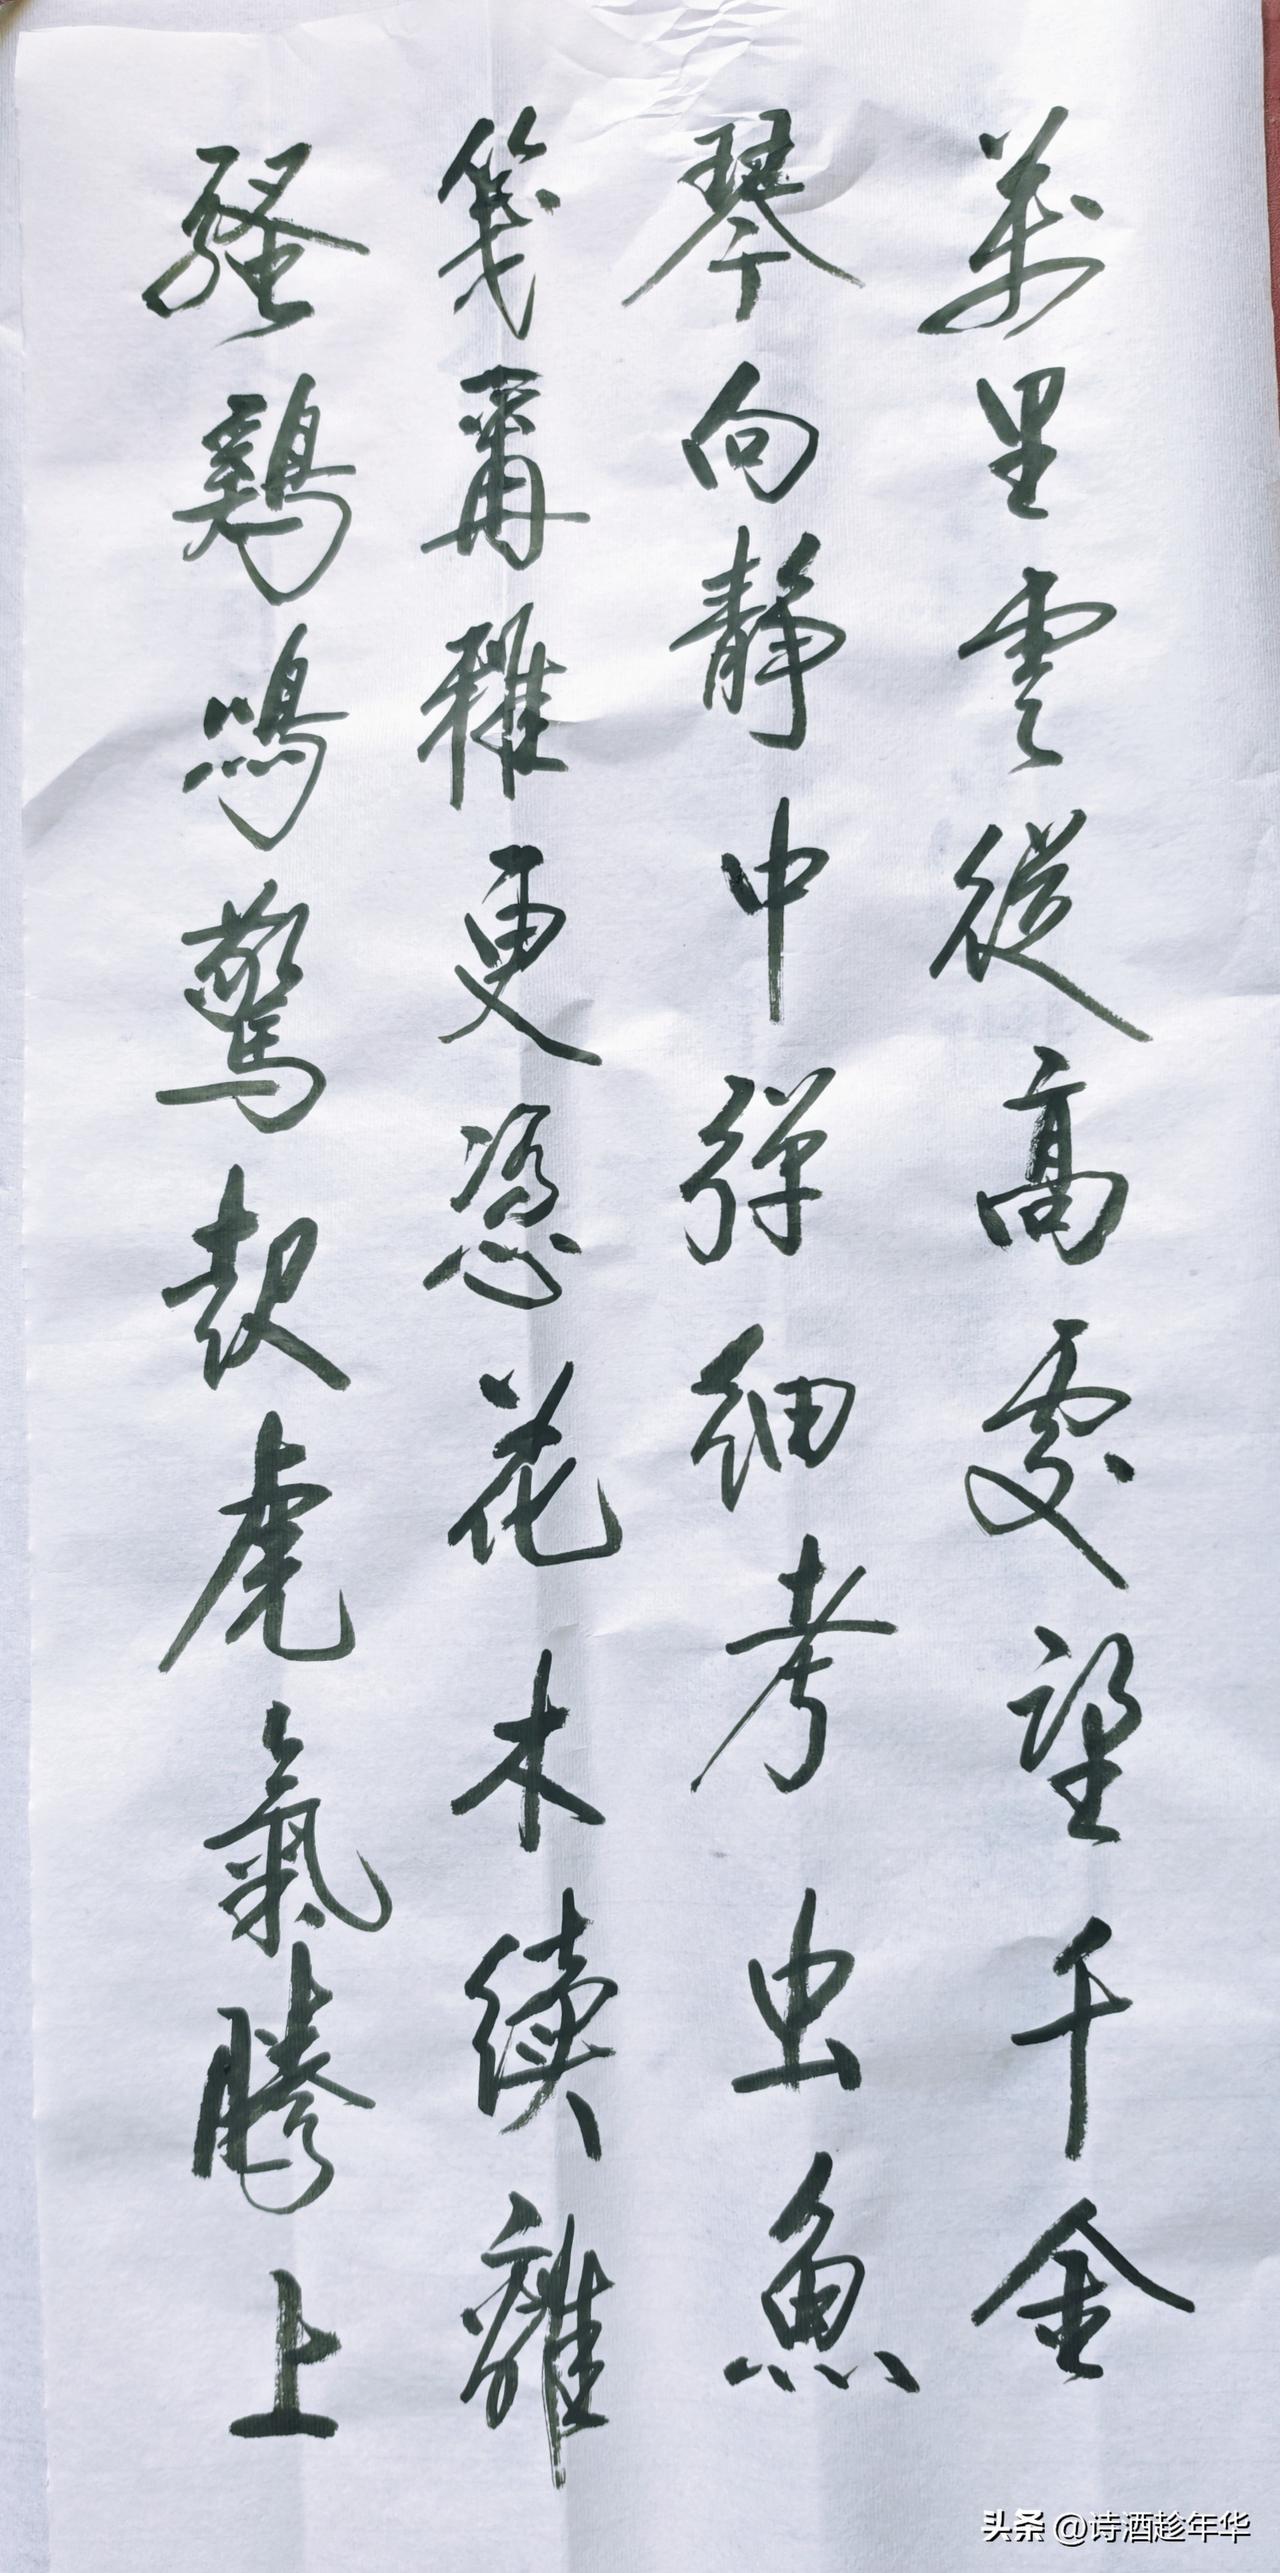 萬里雲從高處望千金
琴向靜中彈細考虫魚
箋爾雅更憑花木續離
騷鷄鳴驚起虎氣騰上
头条 @诗酒趁年华